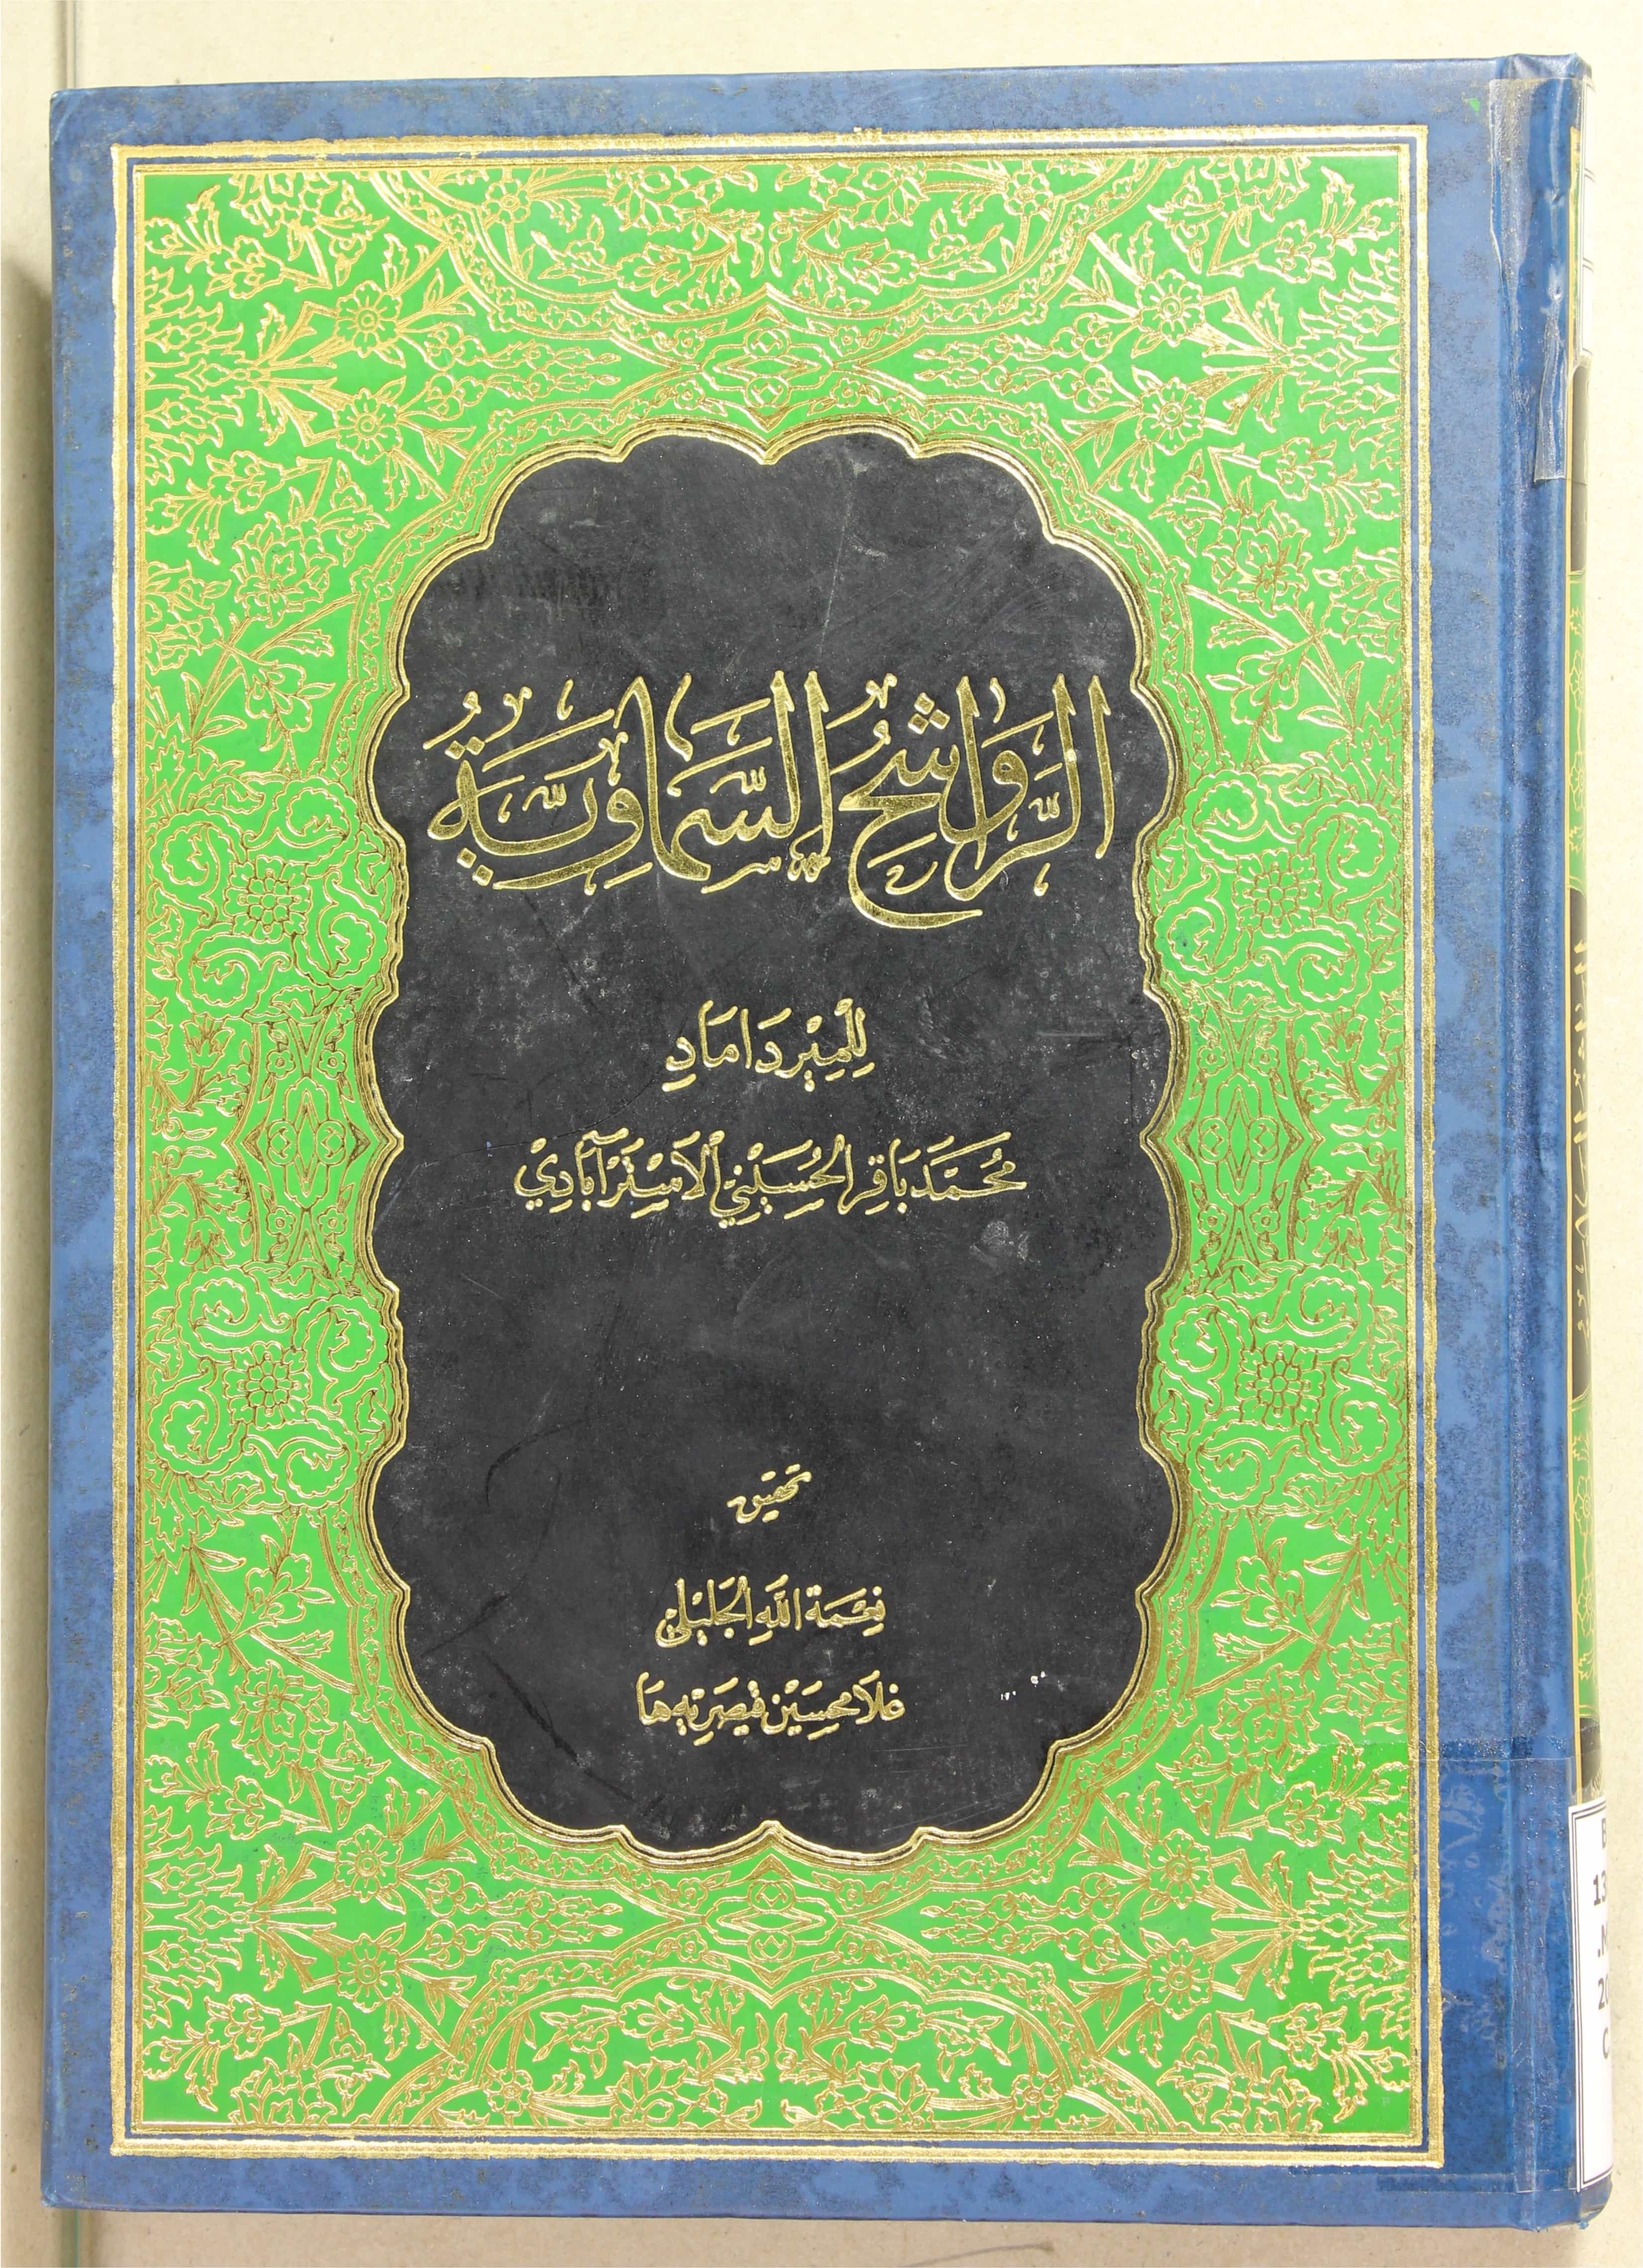 الرَّوَاشِحُ السَّمَاوِيَّةُ
لِلْمِيْرِدَامَادِ
مُحَمَّدبَاقِرالحُسَيْنِيّ الاَسْتَرْآبَادِيْ
تحقيق
نِعْمَة اللّٰهِ الجَلِيْلِيْ
غلامحسين قيصريه ها
13
20